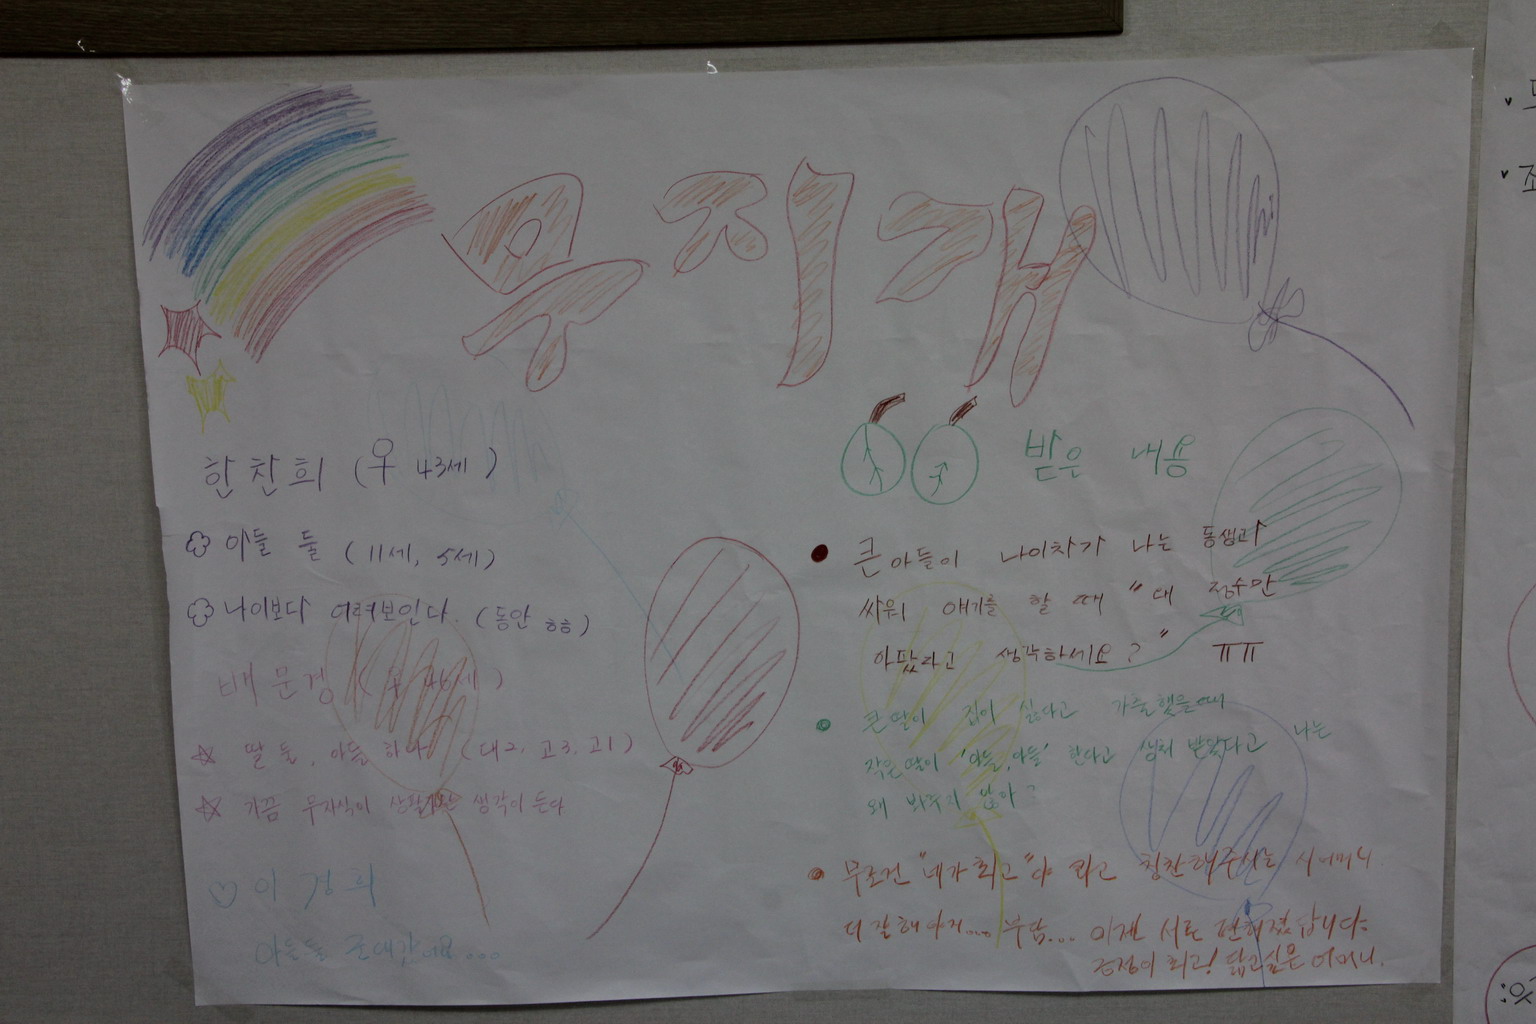 무지개
한찬희 (우 43세)
아들 둘 (11세, 5세)
나이보다 어려보인다. (동안 ㅎㅎ)
배문경 (우 46세)
딸 둘, 아들 하나 (대2, 고3, 고1)
가끔 무자식이 상팔자란 생각이 든다
이경희
아들들 군대갔어요...
받은 내용
큰아들이 나이차가 나는 동생과
싸워 얘기를 할 때 "대 점수만
아팠라고 생각하세요?" ㅠㅠ
큰딸이 집이 싫다고 가출했을때
작은딸이 '아들, 아들' 한다고 상처 받았다고 나는
왜 봐주지 않아?
무조건 "네가 최고"야 라고 칭찬해주시는 시어머니
더 잘해야지... 부담... 이젠 서로 편해졌습니다.
긍정이 최고! 닮고싶은 어머니.